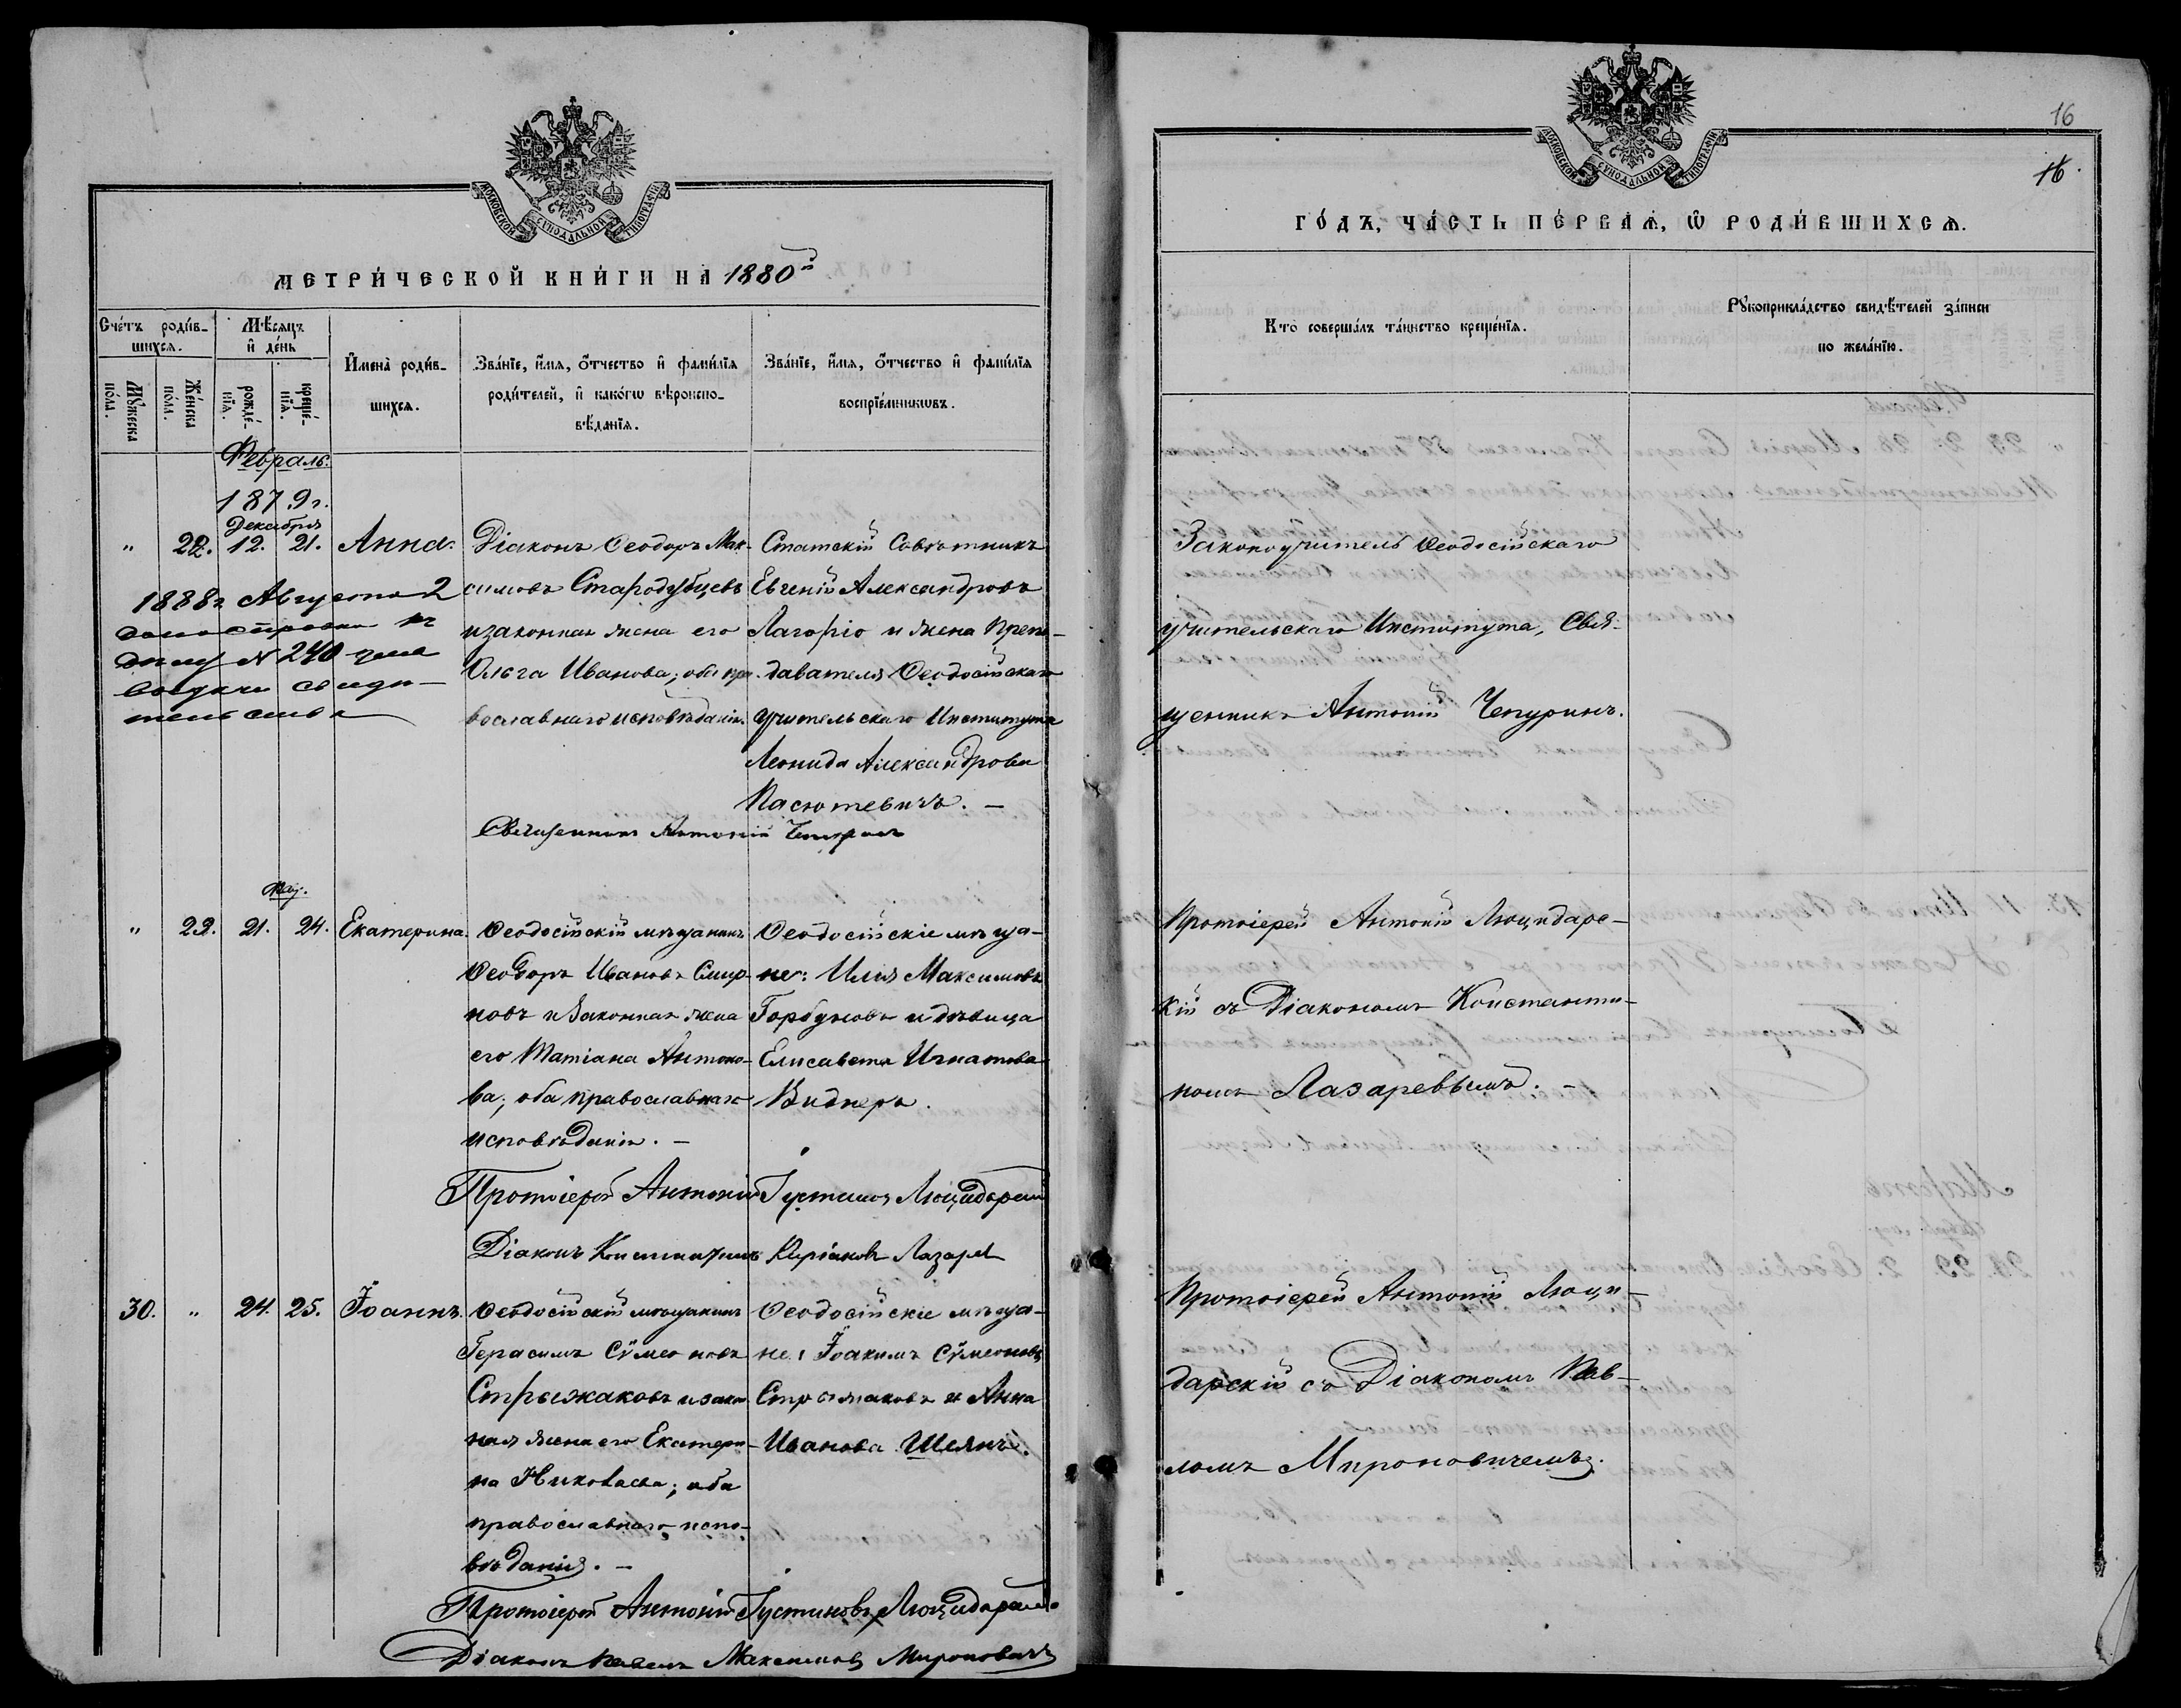 МОСКОВСКОЙ СѴНОДАЛЬНОЙ ТИПОГРАФІИ
МЕТРИ́ЧЕСКОЙ КНИ́ГИ НА 1880й
Сче́тъ роди́в-
шихся.
Мѣ́сяцъ
и҆ де́нь
И҆мена̀ роди́в-
шихся.
Зва́нїе, и҆́мя, ѻ҆́тчество и҆ фами́лїя
роди́телей, и҆ како́гѡ вѣроиспо-
вѣ́данїя.
Зва́нїе, и҆́мя, ѻ҆́тчество и҆ фами́лїя
воспрїе́мникѡвъ.
Мꙋ́жеска
по́ла.
Же́нска
по́ла.
рожде́-
нїя.
креще́-
нїя.
Февраль.
1879 г.
Декабрь
" 22. 12. 21. Анна.
Діаконъ Ѳеодоръ Мак-
симовъ Стародубцевъ
и законная жена его
Ольга Иванова; оба пра-
вославнаго исповѣданія.
Статскій Совѣтникъ
Евгеній Александровъ
Лагоріо и жена препо-
давателя Ѳеодосійскаго
учительскаго Института
Леонида Александрова
Пасютевичъ. –
1888 г Августа 2
дѣлу № 240
выдачи свидѣ-
тельства
Священникъ Антоній Чепуринъ
" 22. 21. 24. Екатерина.
Ѳеодосійскій мѣщанинъ
Ѳеодоръ Ивановъ Смир-
новъ и законная жена
его Татіана Антоно-
ва; оба православнаго
исповѣданія. –
Ѳеодосійскіе мѣща-
не: Илія Максимовъ
Горбуновъ и дѣвица
Елисавета Игнатова
Виднеръ.
Протоіерей Антоній Іустиновъ Люцидарскій
Діаконъ Константинъ Киріаковъ Лазаревъ
30. " 24. 25. Іоаннъ.
Ѳеодосійскій мѣщанинъ
Герасимъ Сѵмеоновъ
Стрыжаковъ и закон-
ная жена его Екатери-
на Николаева; оба
православнаго испо-
вѣданія. –
Ѳеодосійскіе мѣща-
не: Іоакимъ Сѵмеоновъ
Стрыжаковъ и Анна
Иванова Шеянъ.
Протоіерей Антоній Іустиновъ Люцидарскій
Діаконъ Павелъ Максимовъ Мироновичъ
16
16.
МОСКОВСКОЙ СѴНОДАЛЬНОЙ ТИПОГРАФІИ
ГО́ДЪ, ЧА́СТЬ ПЕ́РВАЯ, Ѡ҆ РОДИ́ВШИХСЯ.
Кто̀ соверша́лъ та́инство креще́нїя.
Рꙋкоприкла́дство свидѣ́телей за́писи
по жела́нїю.
Законоучитель Ѳеодосійскаго
учительскаго Института, Свя-
щенникъ Антоній Чепуринъ.
Протоіерей Антоній Люцидарс-
кій съ Діакономъ Константи-
номъ Лазаревымъ. –
Протоіерей Антоній Люци-
дарскій съ Діакономъ Пав-
ломъ Мироновичемъ.